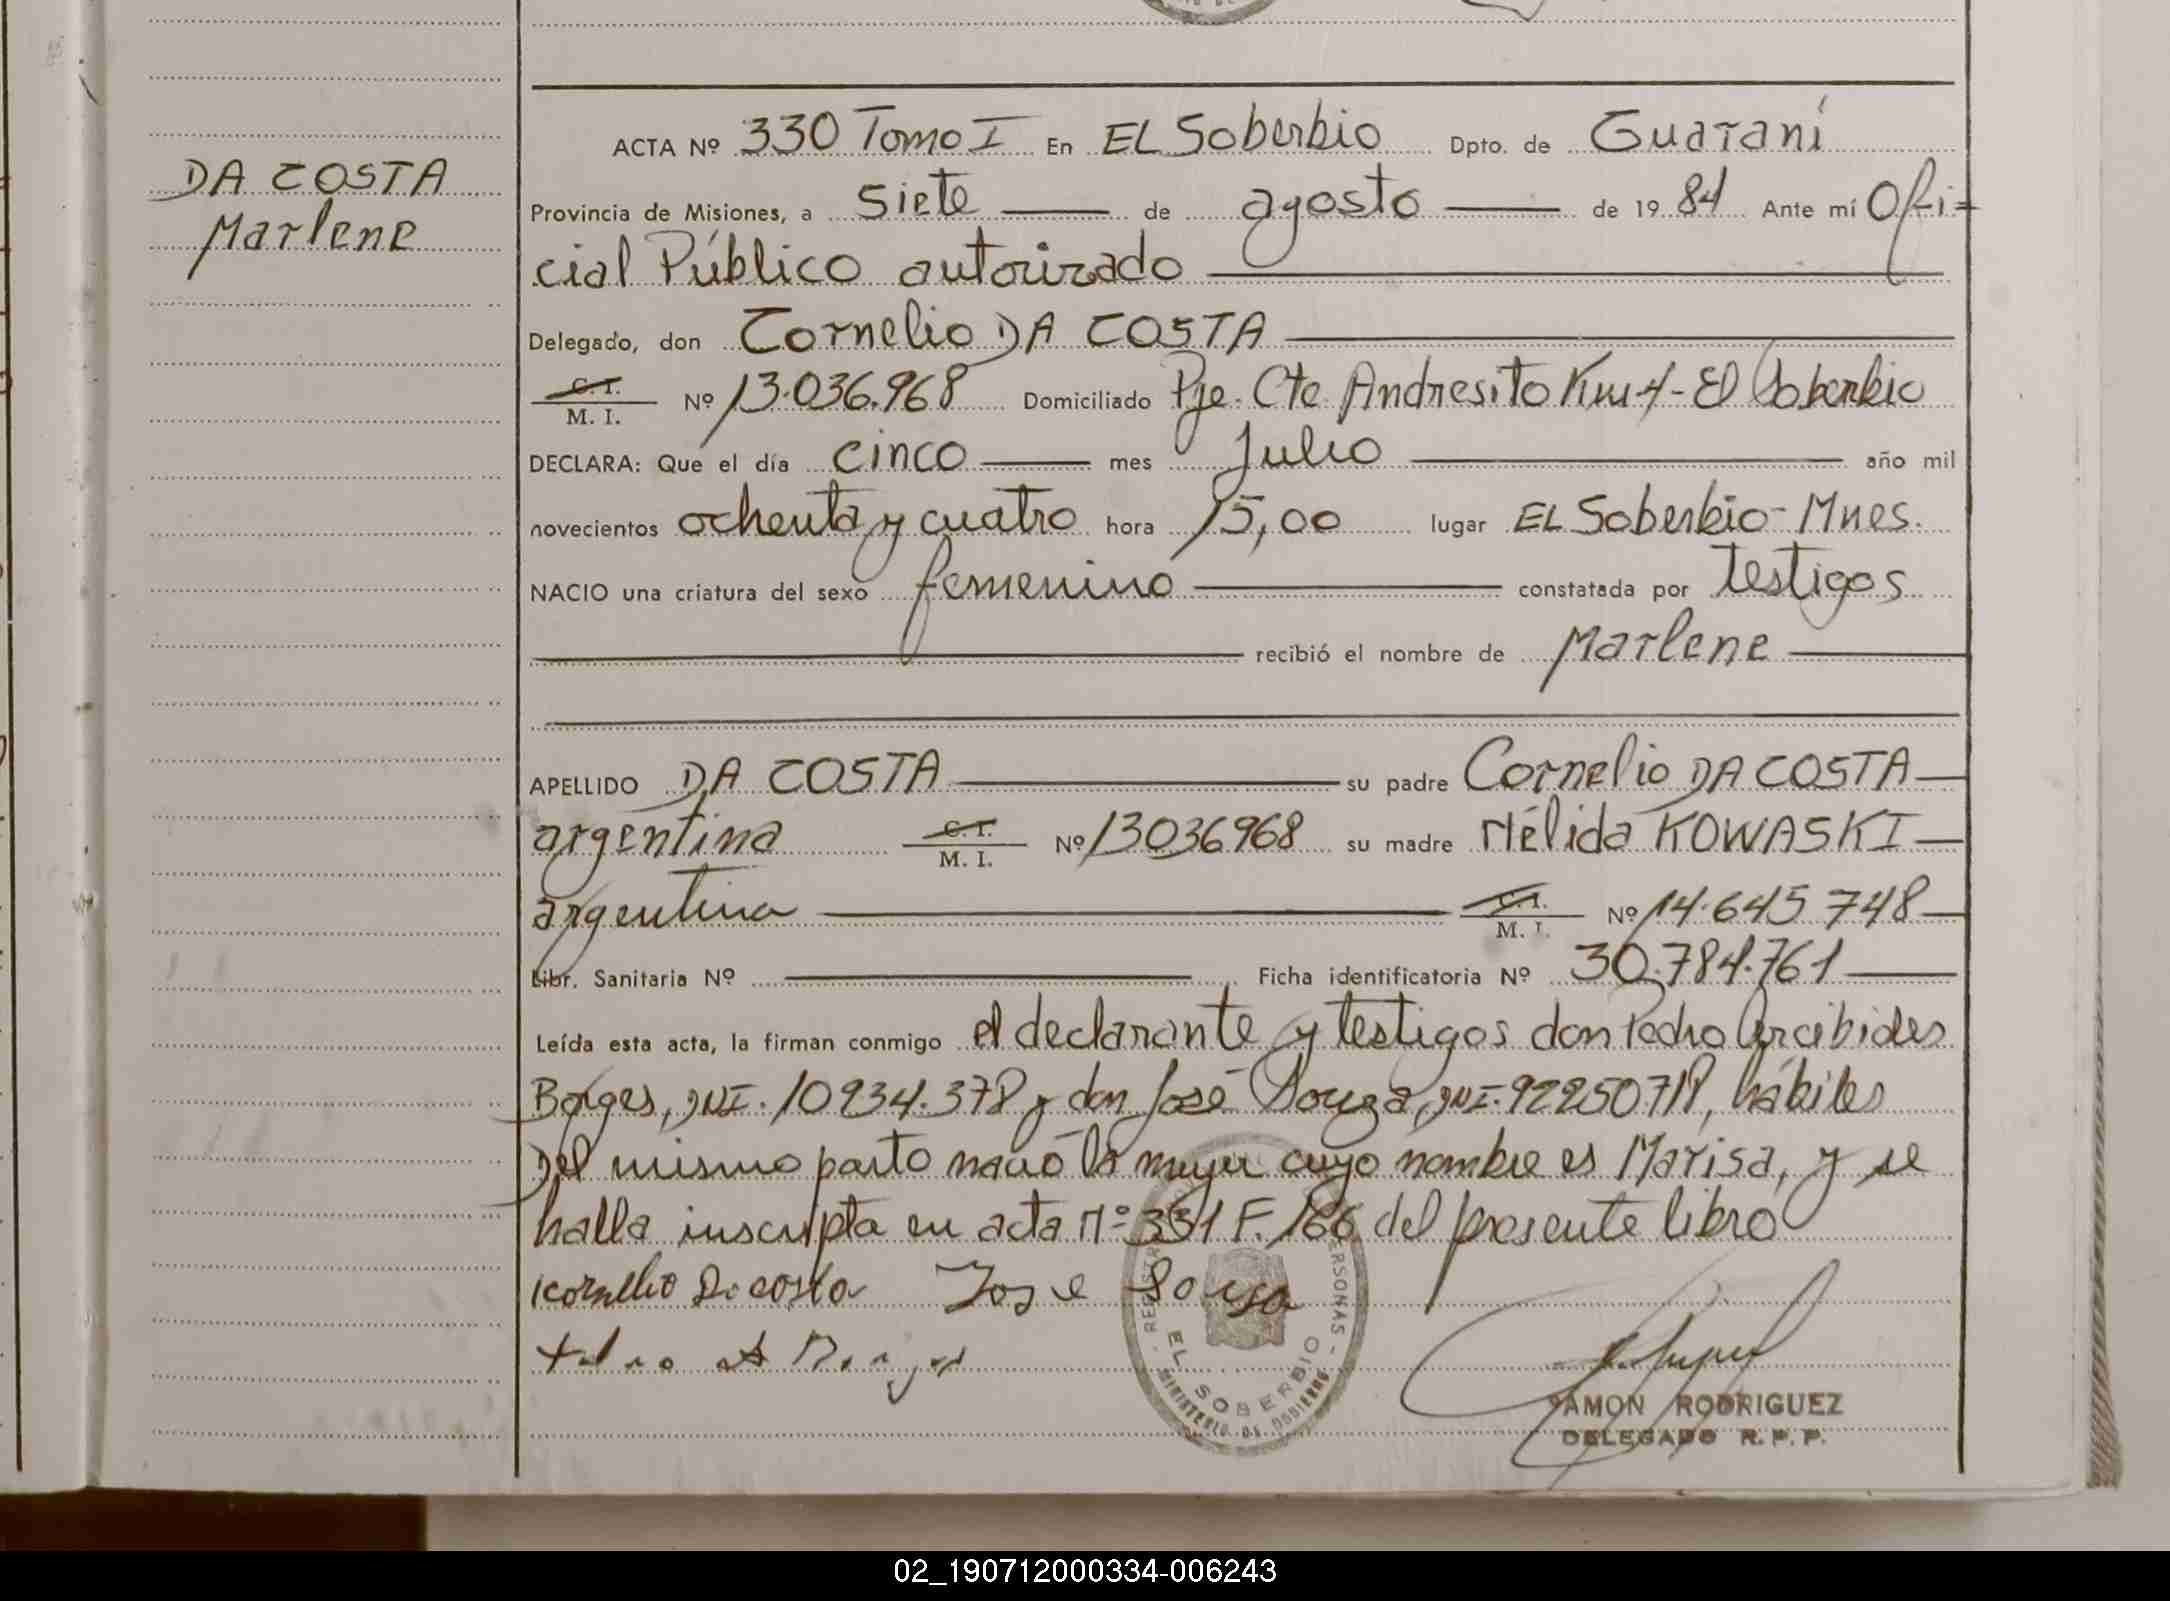 DA COSTA
Marlene
ACTA Nº 330 Tomo I En EL Soberbio Dpto. de Guaraní
Provincia de Misiones, a siete de agosto de 1984 Ante mí Ofi-
cial Público autorizado
Delegado, don Cornelio DA COSTA
C. I.
M. I. Nº 13.036.968 Domiciliado Pje. Cte Andresito Km 4 - El Soberbio
DECLARA: Que el día cinco mes Julio año mil
novecientos ochenta y cuatro hora 15,00 lugar EL Soberbio - Mnes.
NACIO una criatura del sexo femenino constatada por testigos
recibió el nombre de Marlene
APELLIDO DA COSTA su padre Cornelio DA COSTA
argentina C. I. M. I. Nº 13036968 su madre Nélida KOWASKI
argentina C. I. M. I. Nº 14.645748
Libr. Sanitaria Nº Ficha identificatoria Nº 30.784.761
Leída esta acta, la firman conmigo el declarante y testigos don Pedro Arcibides
Borges, DNI. 10934.378 y don José Souza, DNI. hábiles
Del mismo parto nació la mujer cuyo nombre es Marisa, y se
halla inscripta en acta Nº 331 F. 166 del presente libro
Kornelio Da costa Jose Souza
REGISTR PERSONAS
EL SOBERBIO
MINISTERIO DE GOBIERNO
RAMON RODRIGUEZ
DELEGADO R. P. P.
02_190712000334-006243